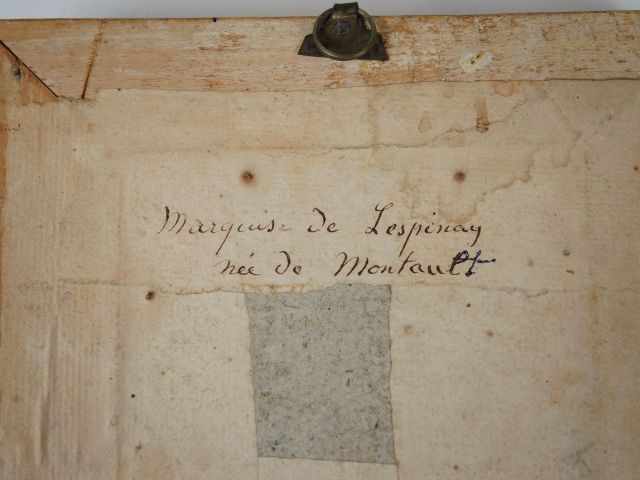 Marquise de Lespinay
née de Montault